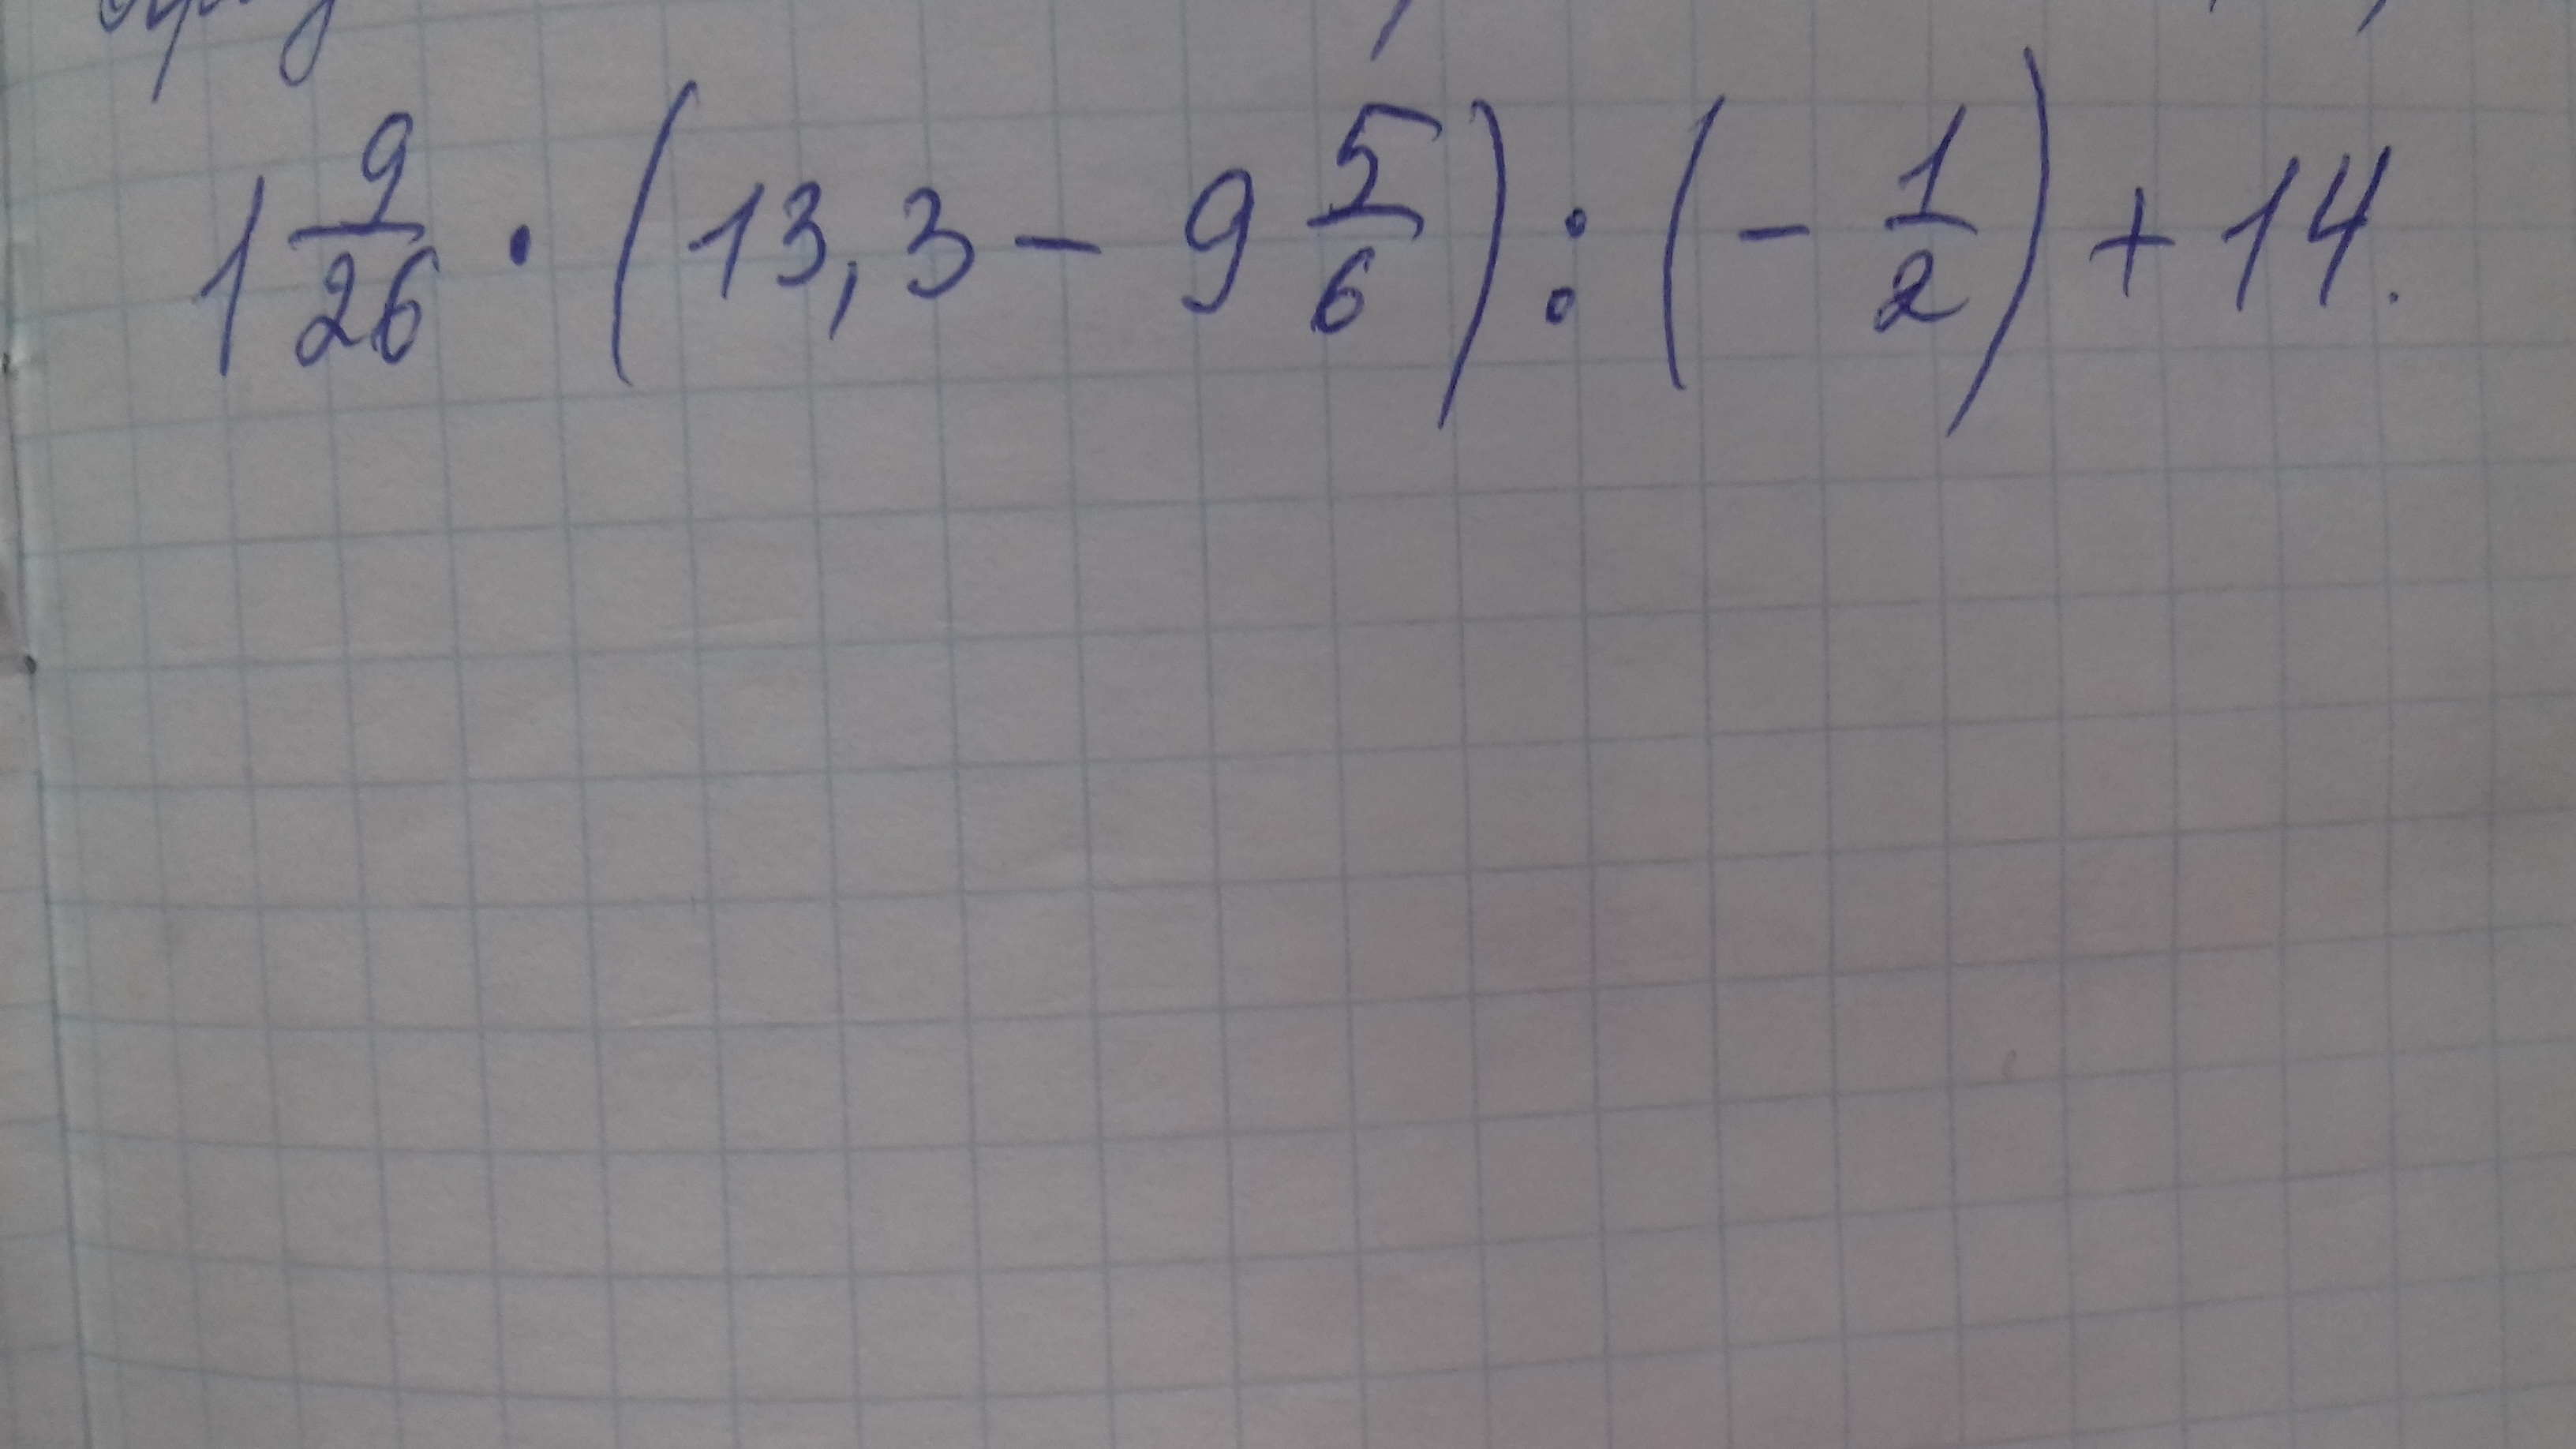 1 9/26 · (13,3 - 9 5/6) : (- 1/2) + 14.